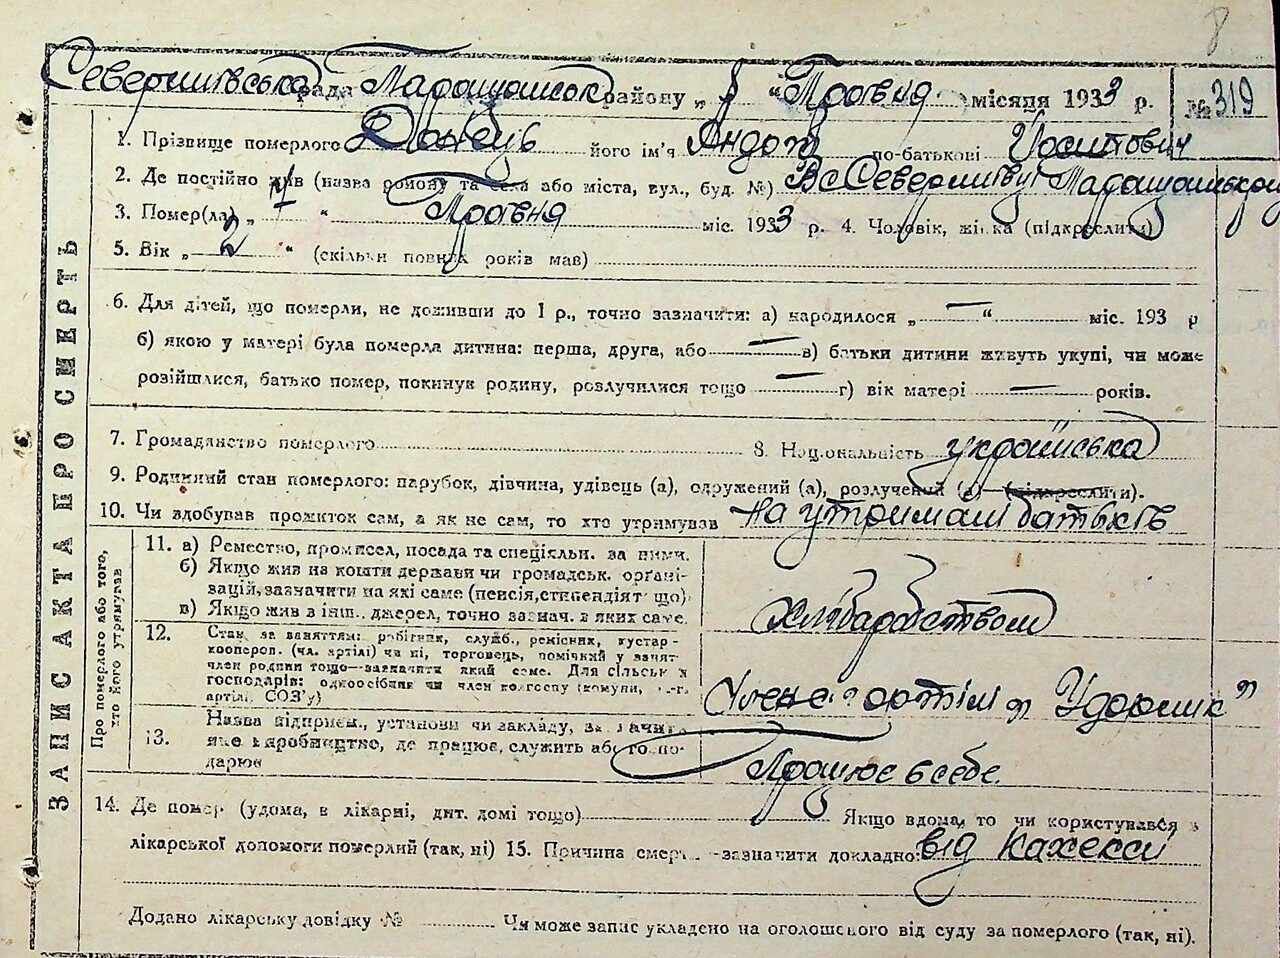 8
рада районул „ “ Травня місяця 1933 р. № 319
1. Прізвище померлого Донець його ім'я по-батькові
2. Де постійно жив (назва району та села або міста, вул., буд. №)
3. Помер(ла) „ “ Травня міс. 1933 р. 4. Чоловік, жінка (підкреслити)
5. Вік „ 2 “ (скільки повних років мав)
6. Для дітей, що померли, не доживши до 1 р., точно зазначити: а) народилося „ — “ міс. 193 р
б) якою у матері була померла дитина: перша, друга, або — в) батьки дитини живуть укупі, чи може
розійшлися, батько помер, покинув родину, розлучилися тощо — г) вік матері — років.
7. Громадянство померлого 8. Національність українська
9. Родинний стан померлого: парубок, дівчина, удівець (а), одружений (а), розлучений (а) (підкреслити).
10. Чи здобував прожиток сам, а як не сам, то хто утримував На утримані батьків
ЗАПИС АКТА ПРО СМЕРТЬ
Про померлого або того, хто його утримував
11. а) Ремество, промисел, посада та спеціяльн. за ними.
б) Якщо жив на кошти держави чи громадськ. органі-
зацій, зазначити на які саме (пенсія, стипендіят що)
в) Якщо жив з інш. джерел, точно зазнач. з яких саме.
Хліборобством
12. Стан за заняттям: робітник, служб., ремісник, кустар-
кооперов. (чл. артілі) чи ні, торговець, помічний у занят.
член родини тощо—зазначити який саме. Для сільськ
господарів: одноосібник чи член колгоспу (комуни,
артілі, СОЗ'у)
артілі „Ударник“
13. Назва підприєм., установи чи закладу,
яке виробництво, де працює, служить або госпо-
дарює
Працює в себе
14. Де помер (удома, в лікарні, дит. домі тощо) Якщо вдома, то чи користувався
лікарської допомоги померлий (так, ні) 15. Причина смерти—зазначити докладно: від Кахексії
Додано лікарську довідку № Чи може запис укладено на оголошеного від суду за померлого (так, ні).